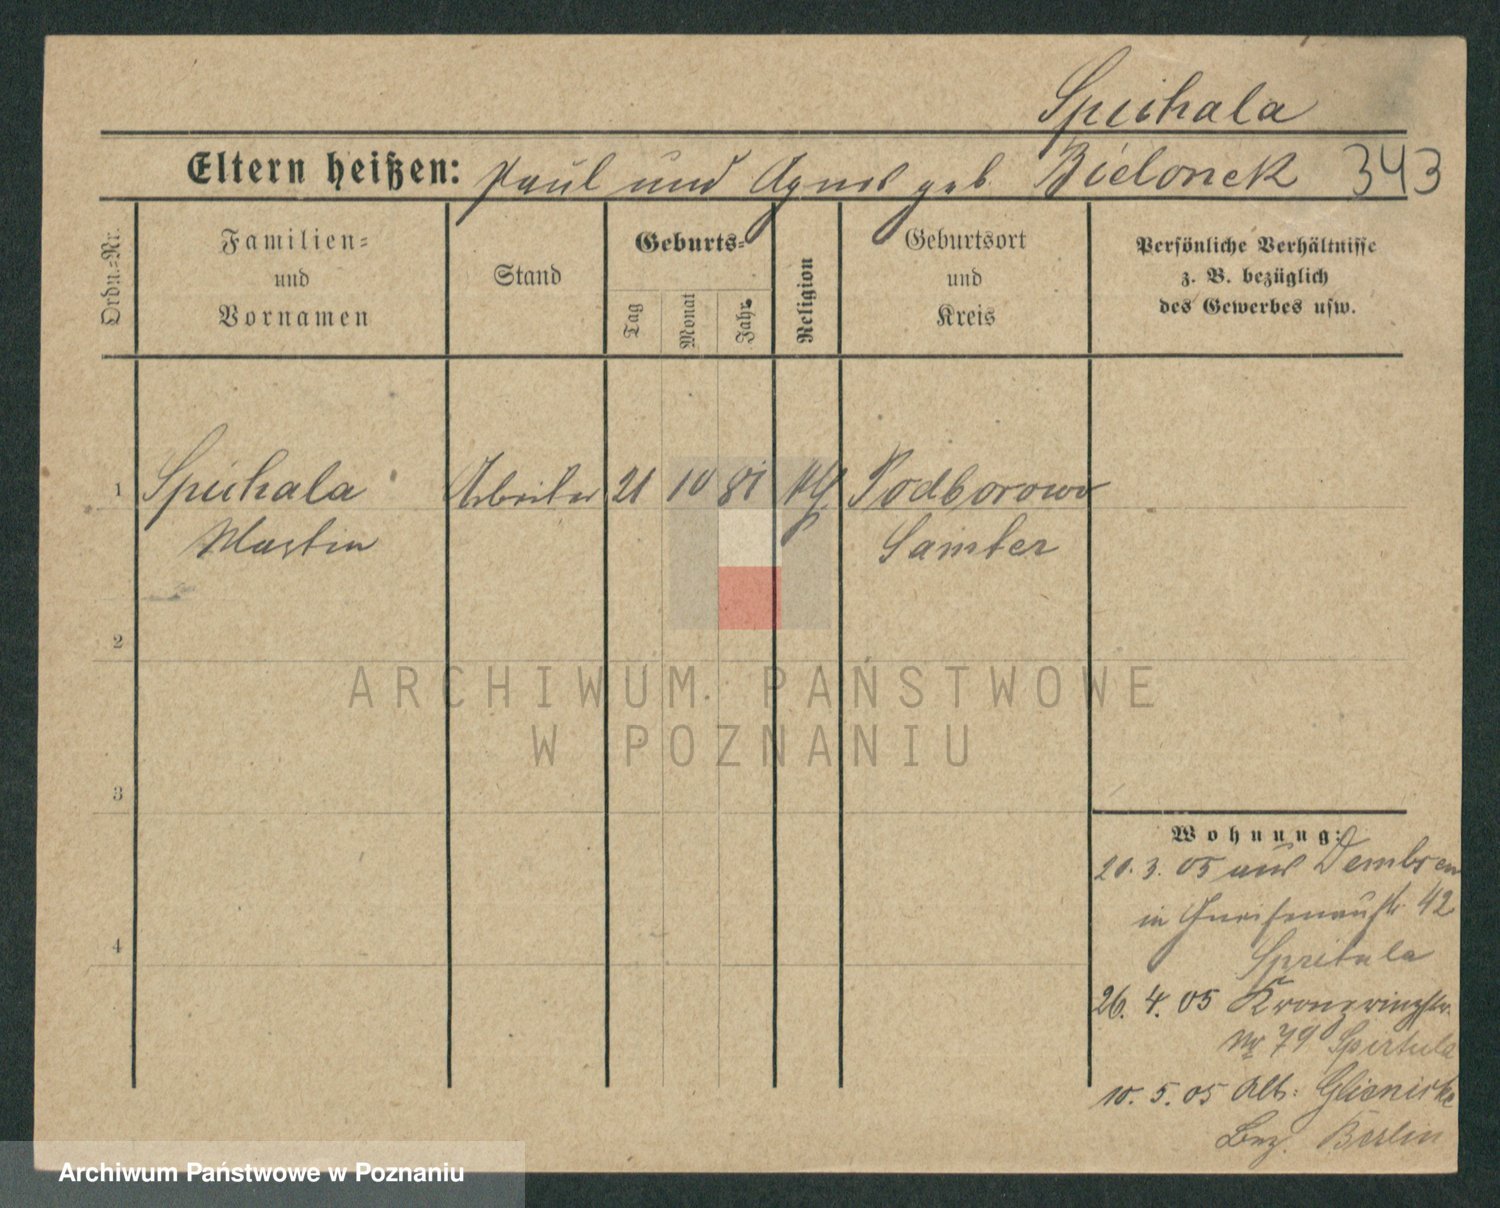 Spichala
Eltern heißen: Paul und Agnes geb. Bielonek 343
Ordn.-Nr.
Familien-
und
Vornamen
Stand
Geburts-
Tag
Monat
Jahr
Religion
Geburtsort
und
Kreis
Persönliche Verhältnisse
z. B. bezüglich
des Gewerbes usw.
1 Spichala Arbeiter 21 10 81 Podborowo
Martin Samter
2
ARCHIWUM PAŃSTWOWE
W POZNANIU
3
Wohnung:
20. 3. 05 aus Dembsen
in Gneisenaustr 42
4
26. 4. 05 Kronprinzstr.
Nr 79
10. 5. 05 Alt: Glienicke
Bez. Berlin
Archiwum Państwowe w Poznaniu